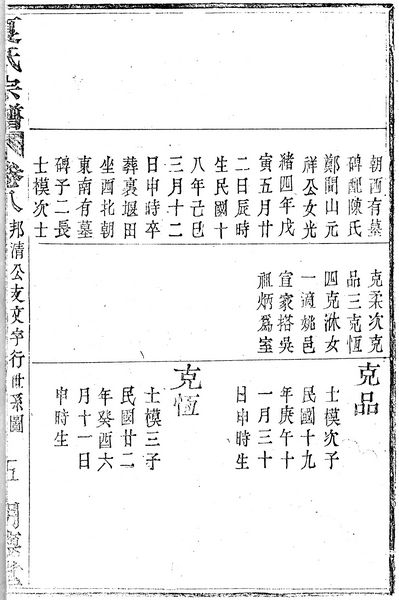 朝西有墓
碑配陳氏
鄭間山元
祥公女光
緒四年戊
寅五月廿
二日辰時
生民國十
八年己巳
三月十二
日申時卒
葬裏堰田
坐西北朝
東南有墓
碑子二長
士模次士
克柔次克
品三克恆
四克洣女
一適姚邑
宣家搭吳
祖炳爲室
克品
士模次子
民國十九
年庚午十
一月三十
日申時生
克恆
士模三子
民國廿二
年癸酉六
月十一日
申時生
氏宗譜 卷八
邦清公支文字行世系圖
五